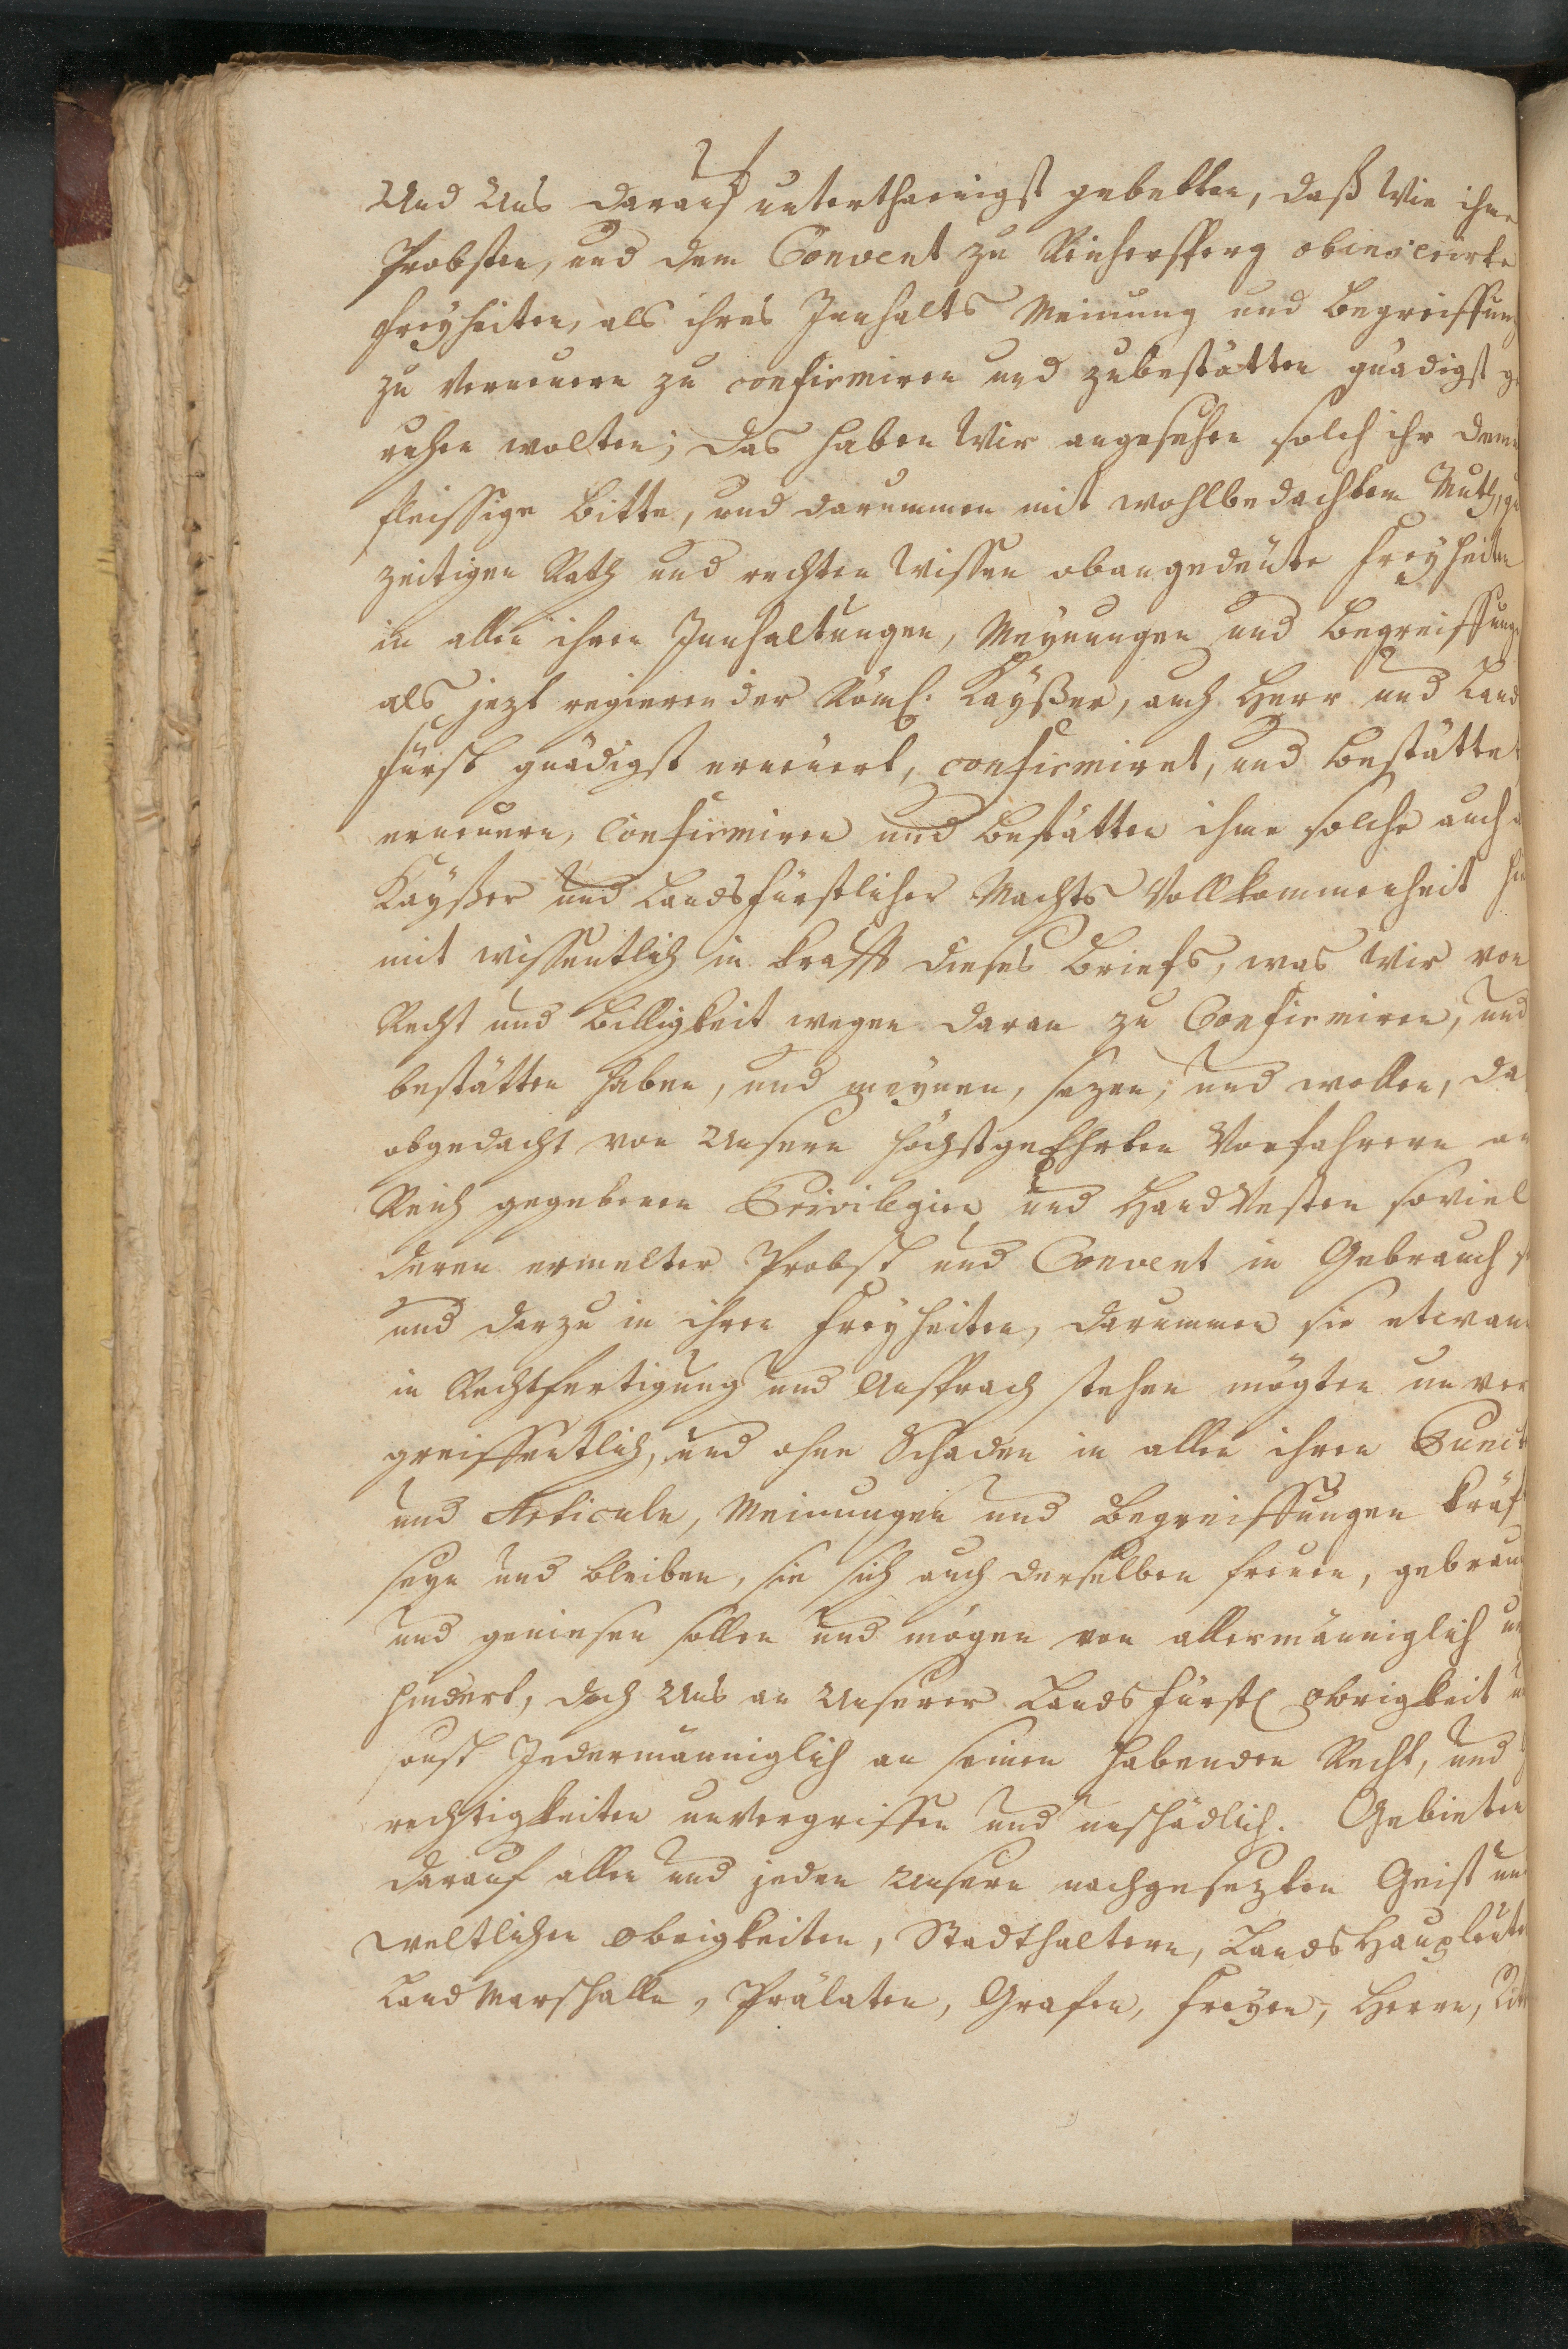 Und Uns darauf unterthaenigst gebetten, daß Wir ihme
Probsten, und dem Convent zu Reichersperg obinserirte
Freyheiten, als ihres Innhalts Meinung und Begreiffung
zu Verneuern zu confirmiren und zubestätten gnädigst ge
ruhen wolten; Das haben Wir angesehen solch ihr dem
fleissige Bitte, und darummen mit wohlbedachtem Muth,
zeitigen Rath und rechten Wissen obangedeute Freyheiten
in allen ihren Innhaltungen, Meynungen und Begreiffung
als jezt regierender Röml: Kayßer, auch Herr und Land
Fürst gnädigst erneuert, confirmiret, und bestättet,
erneuern, Confirmiren und bestätten ihme solche auch
Kayßer und Landsfürstlicher Machts Vollkommenheit hie
mit wissentlich in krafft dieses Briefs, was Wir von
Recht und Billigkeit wegen daran zu Confirmiren, und
bestätten haben, und meynen, sezen, und wollen, da
obgedacht von Unsern höchstgeEhrten Vorfahrern am
Reich gegebenen Privilegien und HandVesten soviel
deren ermelter Probst und Convent in Gebrauch
und darzu in ihren Freyheiten, darummen sie etwan
in Rechtfertigung und Ansprach stehen mögten unver
greiffentlich, und ohne Schaden in allen ihren Punct
und Articuln, Meinungen und Begreiffungen kräf
seyn und bleiben, sie sich auch derselben freuen, gebrau
und geniesen sollen und mögen von allermänniglich un
hindert, doch Uns an Unserer Landsfürstl Obrigkeit
sonst Jedermänniglich an seinen habenden Recht, und
rechtigkeiten unvergriffen und unschädlich. Gebieten
darauf allen und jeden Unsern nachgesezten Geist und
weltlichen Obrigkeiten, Stadthaltern, LandsHaupleute
LandMarschalln, Prälaten, Grafen, Freyen, Herrn, Rit